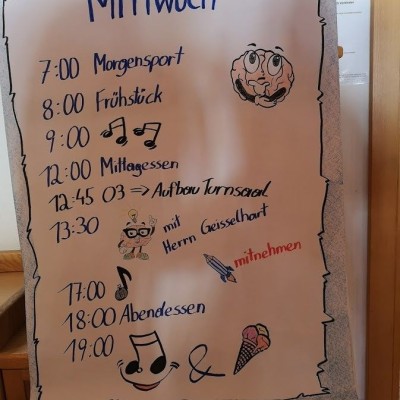 Mittwoch
7:00 Morgensport
8:00 Frühstück
9:00
12:00 Mittagessen
12:45 03 ⇒ Aufbau Turnsaal
13:30 mit
Herrn Geisselhart
mitnehmen
17:00
18:00 Abendessen
19:00 &